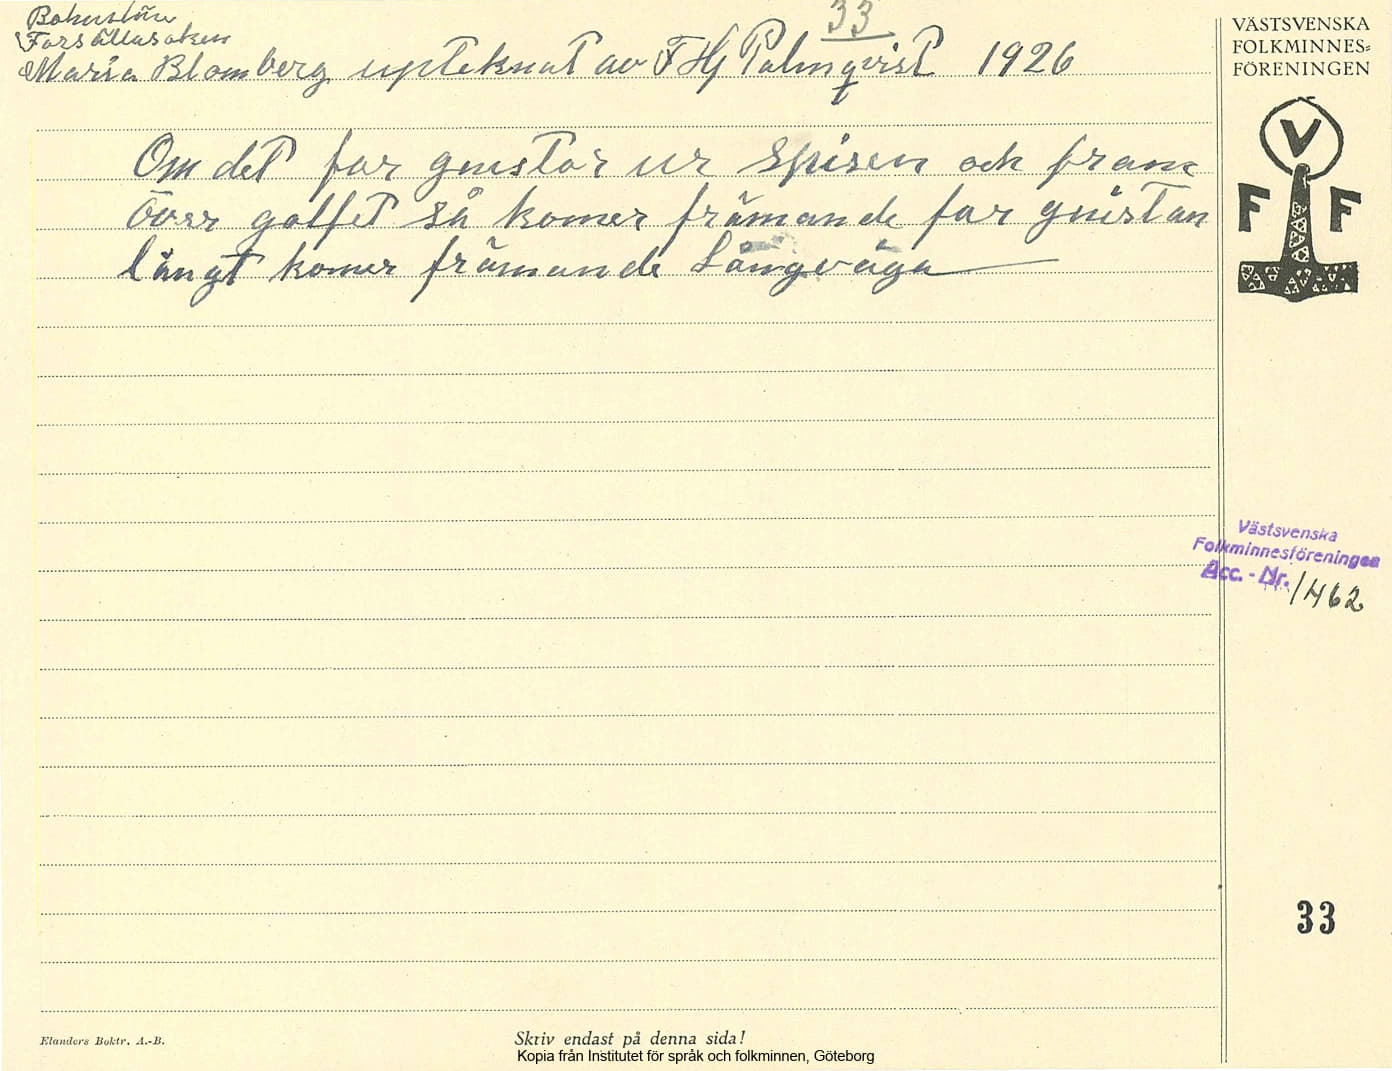 33
Bohuslän
Forshällasoken
Maria Blomberg upteknat av F Hj Palmqvist 1926
Om det far gnistor ur spisen och fram
över golfet så komer främande far gnistan
långt komer främande Långväga
VÄSTSVENSKA
FOLKMINNES=
FÖRENINGEN
V
F F
Västsvenska
Folkminnesföreningen
Acc. - Nr. 1462
33
Elanders Boktr. A.-B.
Skriv endast på denna sida!
Kopia från Institutet för språk och folkminnen, Göteborg